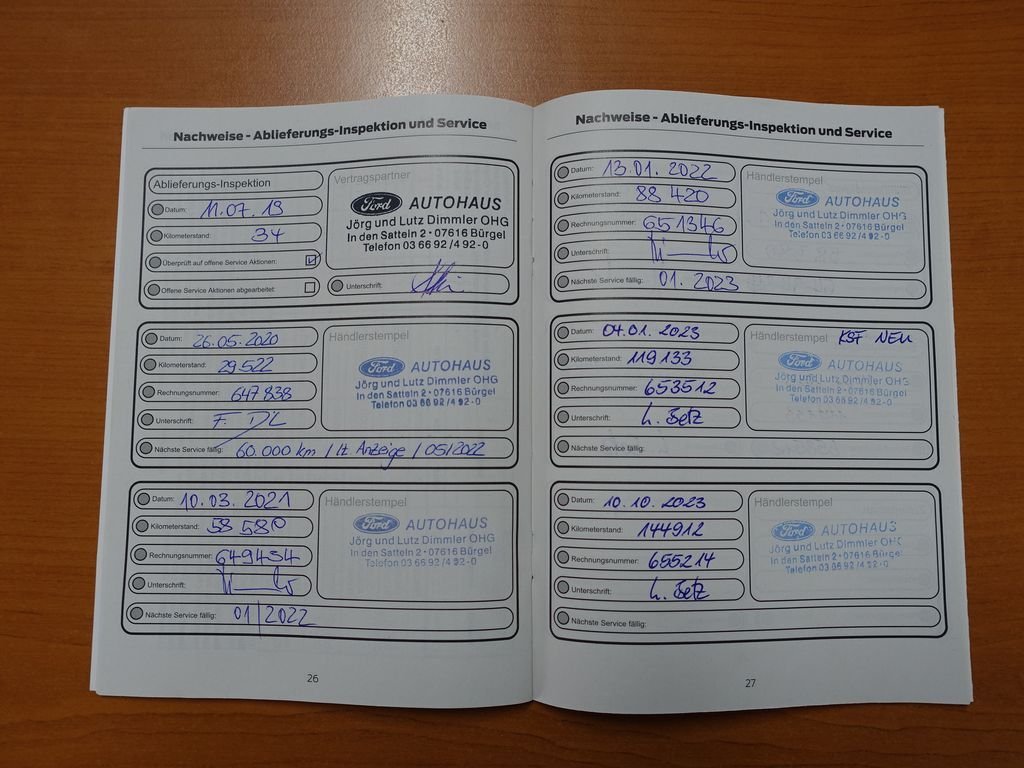 Nachweise - Ablieferungs-Inspektion und Service
Ablieferungs-Inspektion
Datum: 11.07.19
Kilometerstand: 34
Überprüft auf offene Service Aktionen:
Offene Service Aktionen abgearbeitet:
Vertragspartner
Ford AUTOHAUS
Jörg und Lutz Dimmler OHG
In den Satteln 2 • 07616 Bürgel
Telefon 03 66 92 / 4 92 - 0
Unterschrift:
Datum: 26.05.2020
Kilometerstand: 29522
Rechnungsnummer: 647838
Unterschrift:
Nächste Service fällig: 60.000 km / lt. Anzeige / 05/2022
Händlerstempel
Ford AUTOHAUS
Jörg und Lutz Dimmler OHG
In den Satteln 2 • 07616 Bürgel
Telefon 03 66 92 / 4 92 - 0
Datum: 10.03.2021
Kilometerstand: 58 580
Rechnungsnummer: 649434
Unterschrift:
Nächste Service fällig: 01/2022
Händlerstempel
Ford AUTOHAUS
Jörg und Lutz Dimmler OHG
In den Satteln 2 • 07616 Bürgel
Telefon 03 66 92 / 4 92 - 0
26
Nachweise - Ablieferungs-Inspektion und Service
Datum: 13.01.2022
Kilometerstand: 88 420
Rechnungsnummer: 651346
Unterschrift:
Nächste Service fällig: 01.2023
Händlerstempel
Ford AUTOHAUS
Jörg und Lutz Dimmler OHG
In den Satteln 2 • 07616 Bürgel
Telefon 03 66 92 / 4 92 - 0
Datum: 04.01.2023
Kilometerstand: 119133
Rechnungsnummer: 653512
Unterschrift:
Nächste Service fällig:
Händlerstempel KSF NEU
Ford AUTOHAUS
Jörg und Lutz Dimmler OHG
In den Satteln 2 • 07616 Bürgel
Telefon 03 66 92 / 4 92 - 0
Datum: 10.10.2023
Kilometerstand: 144912
Rechnungsnummer: 655214
Unterschrift:
Nächste Service fällig:
Händlerstempel
Ford AUTOHAUS
Jörg und Lutz Dimmler OHG
In den Satteln 2 • 07616 Bürgel
Telefon 03 66 92 / 4 92 - 0
27